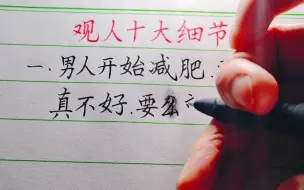 观人十大细节
一.男人开始减肥.
真不好.要